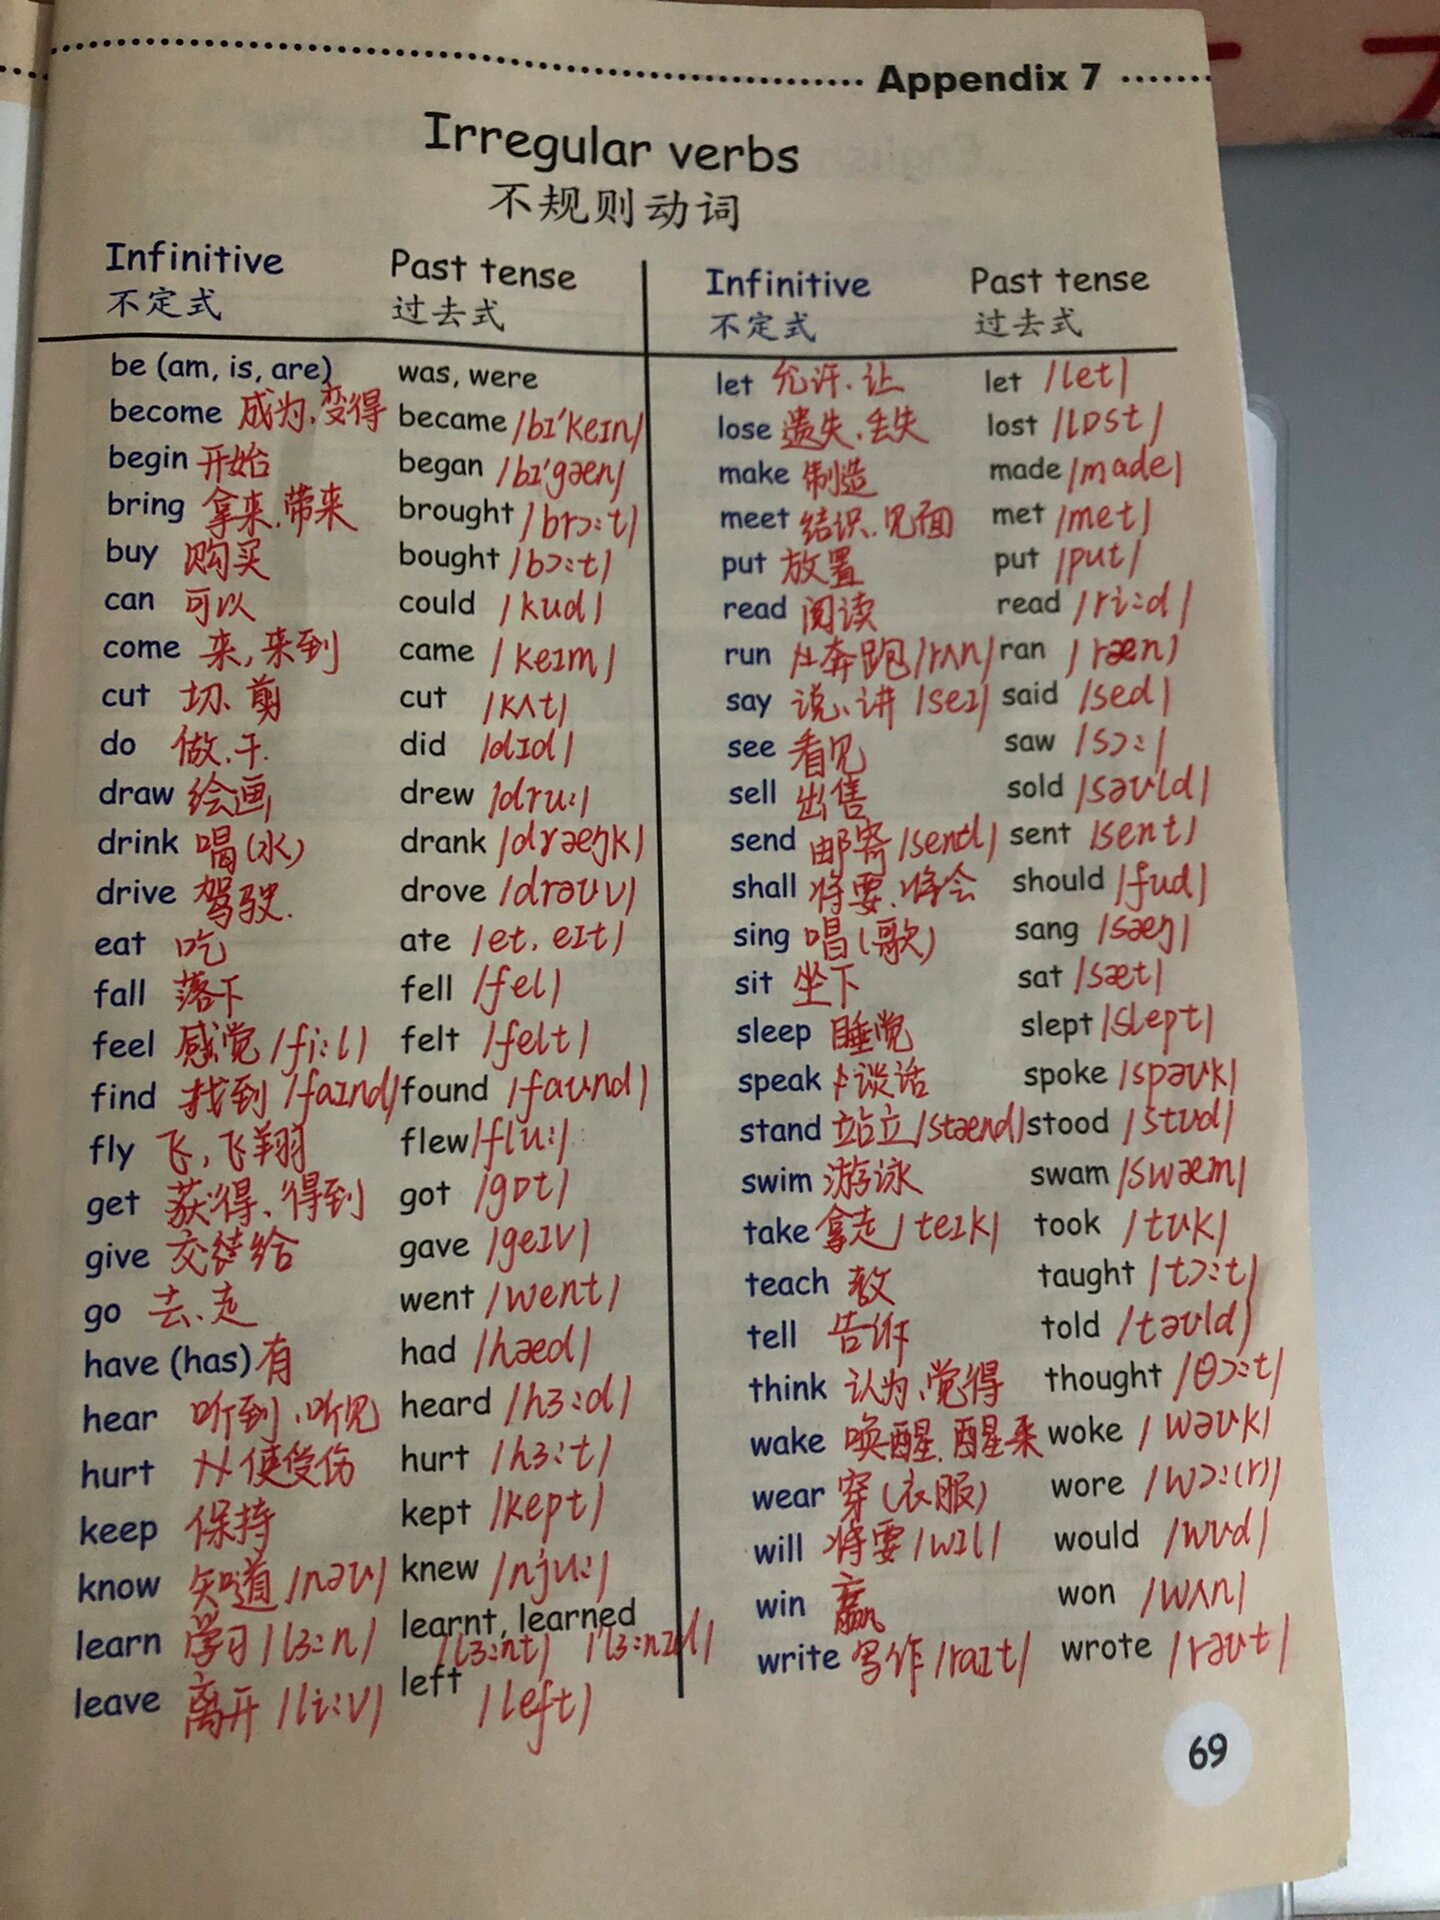 Appendix 7
Irregular verbs
不规则动词
Infinitive Past tense
不定式 过去式
be (am, is, are) was, were
become 成为、变得 became /bɪ'keɪn/
begin 开始 began /bɪ'gæn/
bring 拿来、带来 brought /brɔ:t/
buy 购买 bought /bɔ:t/
can 可以 could /kud/
come 来,来到 came /keɪm/
cut 切、剪 cut /kʌt/
do 做、干. did /dɪd/
draw 绘画 drew /dru:/
drink 喝(水) drank /dræŋk/
drive 驾驶. drove /drəʊv/
eat 吃 ate /et, eɪt/
fall 落下 fell /fel/
feel 感觉 /fi:l/ felt /felt/
find 找到 /faɪnd/ found /faʊnd/
fly 飞,飞翔 flew /flu:/
get 获得、得到 got /gɒt/
give 交给 gave /geɪv/
go 去、走 went /went/
have (has) 有 had /hæd/
hear 听到、听见 heard /hɜ:d/
hurt 使受伤 hurt /hɜ:t/
keep 保持 kept /kept/
know 知道 /nəʊ/ knew /nju:/
learn 学习 /lɜ:n/ learnt, learned
/lɜ:nt/ /'lɜ:nɪd/
leave 离开 /li:v/ left /left/
Infinitive Past tense
不定式 过去式
let 允许、让 let /let/
lose 遗失、丢失 lost /lɒst/
make 制造 made /made/
meet 结识、见面 met /met/
put 放置 put /put/
read 阅读 read /ri:d/
run 奔跑 /rʌn/ ran /ræn/
say 说、讲 /seɪ/ said /sed/
see 看见 saw /sɔ:/
sell 出售 sold /səʊld/
send 邮寄 /send/ sent /sent/
shall 将要、将会 should /ʃud/
sing 唱(歌) sang /sæŋ/
sit 坐下 sat /sæt/
sleep 睡觉 slept /slept/
speak 谈话 spoke /spəʊk/
stand 站立 /stænd/ stood /stʊd/
swim 游泳 swam /swæm/
take 拿走 /teɪk/ took /tʊk/
teach 教 taught /tɔ:t/
tell 告诉 told /təʊld/
think 认为、觉得 thought /θɔ:t/
wake 唤醒、醒来 woke /wəʊk/
wear 穿(衣服) wore /wɔ:(r)/
will 将要 /wɪl/ would /wʊd/
win 赢 won /wʌn/
write 写作 /raɪt/ wrote /rəʊt/
69